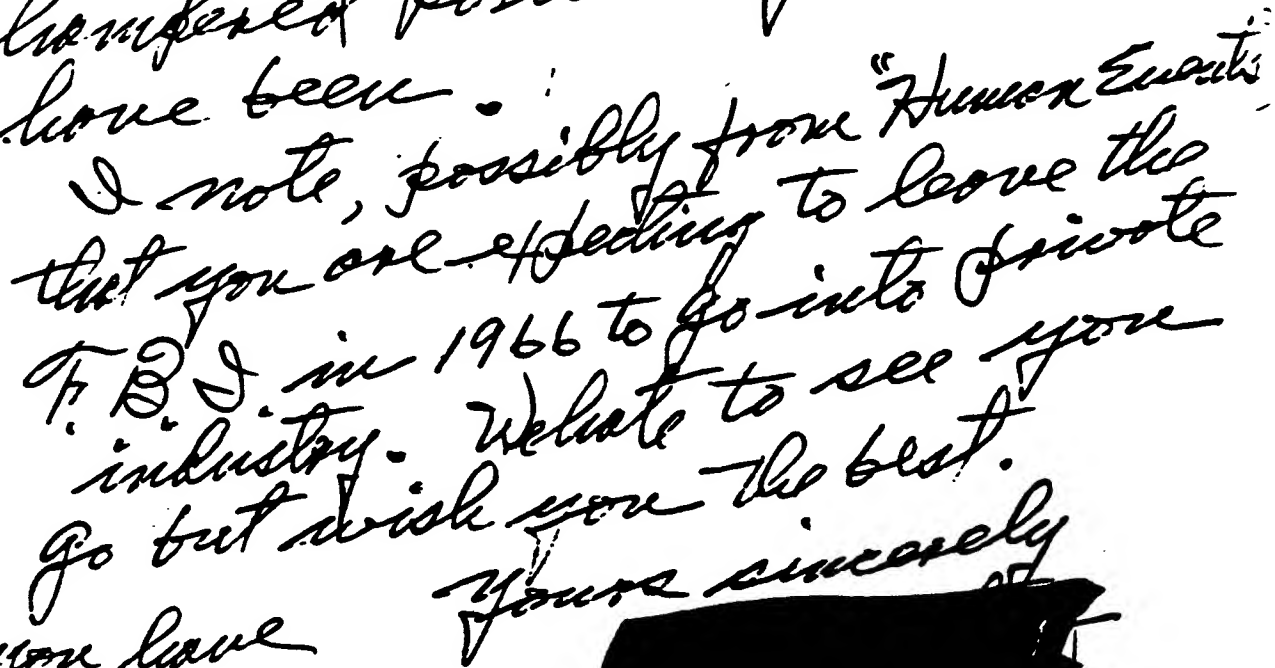 hampered
have been.
I note, possibly from "Human Events
that you are expecting to leave the
F.B.I. in 1966 to go into private
industry. We hate to see you
go but wish you the best.
Yours sincerely
you have